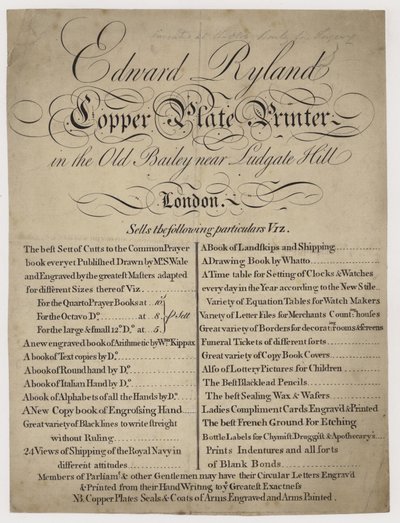 Edward Ryland
Copper Plate Printer
in the Old Bailey near Ludgate Hill
London.
Sells the following particulars Viz.
The best Sett of Cutts to the Common Prayer
book ever yet Published Drawn by Mr. S. Wale
and Engraved by the greatest Masters adapted
for different Sizes thereof Viz
For the Quarto Prayer Books at
For the Octavo Do. at 8.
For the large & small 12os. Do. at 5.
A new engraved book of Arithmetic by Wm. Kippax
A book of Text copies by Do.
A book of Round hand by Do.
A book of Italian Hand by Do.
A book of Alphabets of all the Hands by Do.
A New Copy book of Engrossing Hand
Great variety of Black lines to write streight
without Ruling
24 Views of Shipping of the Royal Navy in
different attitudes
A Book of Landskips and Shipping
A Drawing Book by Whatto
A Time table for Setting of Clocks & Watches
every day in the Year according to the New Stile
Variety of Equation Tables for Watch Makers
Variety of Letter Files for Merchants Countg. houses
Great variety of Borders for decorating rooms & screens
Funeral Tickets of different sorts
Great variety of Copy Book Covers
Also of Lottery Pictures for Children
The Best Blacklead Pencils
The best Sealing Wax & Wafers
Ladies Compliment Cards Engrav'd & Printed
The best French Ground For Etching
Bottle Labels for Chymist Droggist & Apothecary's
Prints Indentures and all sorts
of Blank Bonds
Members of Parliamt. & other Gentlemen may have their Circular Letters Engrav'd
& Printed from their Hand Writing to ye Greatest Exactness
NB. Copper Plates Seals & Coats of Arms Engraved and Arms Painted